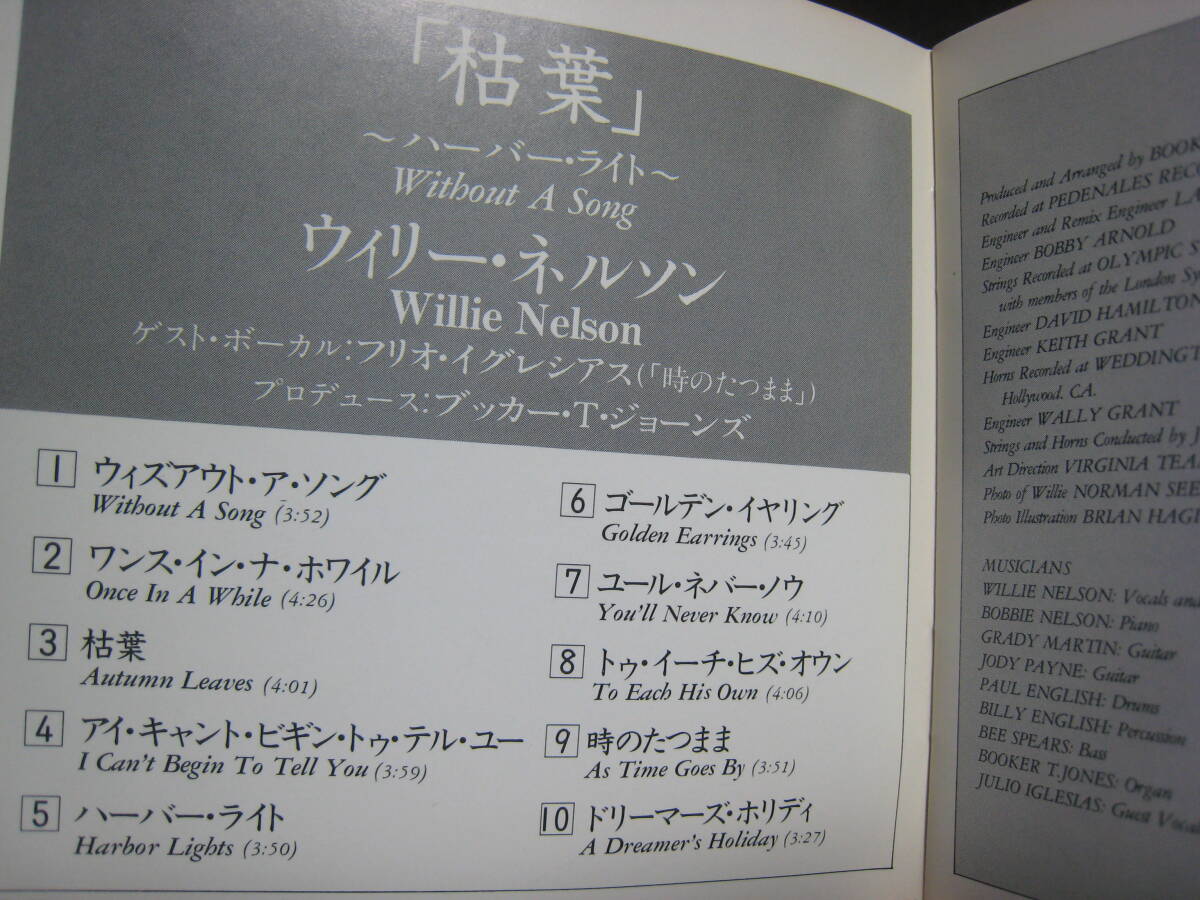 「枯葉」
～ハーバー・ライト～
Without A Song
ウィリー・ネルソン
Willie Nelson
ゲスト・ボーカル:フリオ・イグレシアス(「時のたつまま」)
プロデュース:ブッカー・T・ジョーンズ
1 ウィズアウト・ア・ソング
Without A Song (3:52)
2 ワンス・イン・ナ・ホワイル
Once In A While (4:26)
3 枯葉
Autumn Leaves (4:01)
4 アイ・キャント・ビギン・トゥ・テル・ユー
I Can't Begin To Tell You (3:59)
5 ハーバー・ライト
Harbor Lights (3:50)
6 ゴールデン・イヤリング
Golden Earrings (3:45)
7 ユール・ネバー・ノウ
You'll Never Know (4:10)
8 トゥ・イーチ・ヒズ・オウン
To Each His Own (4:06)
9 時のたつまま
As Time Goes By (3:51)
10 ドリーマーズ・ホリディ
A Dreamer's Holiday (3:27)
Produced and Arranged by BOOK
Recorded at PEDENALES RECO
Engineer and Remix Engineer LA
Engineer BOBBY ARNOLD
Strings Recorded at OLYMPIC S
with members of the London Sy
Engineer DAVID HAMILTON
Engineer KEITH GRANT
Horns Recorded at WEDDINGT
Hollywood, CA.
Engineer WALLY GRANT
Strings and Horns Conducted by J
Art Direction VIRGINIA TEA
Photo of Willie NORMAN SEE
Photo Illustration BRIAN HAGI
MUSICIANS
WILLIE NELSON: Vocals and
BOBBIE NELSON: Piano
GRADY MARTIN: Guitar
JODY PAYNE: Guitar
PAUL ENGLISH: Drums
BILLY ENGLISH: Percussion
BEE SPEARS: Bass
BOOKER T.JONES: Organ
JULIO IGLESIAS: Guest Vocal